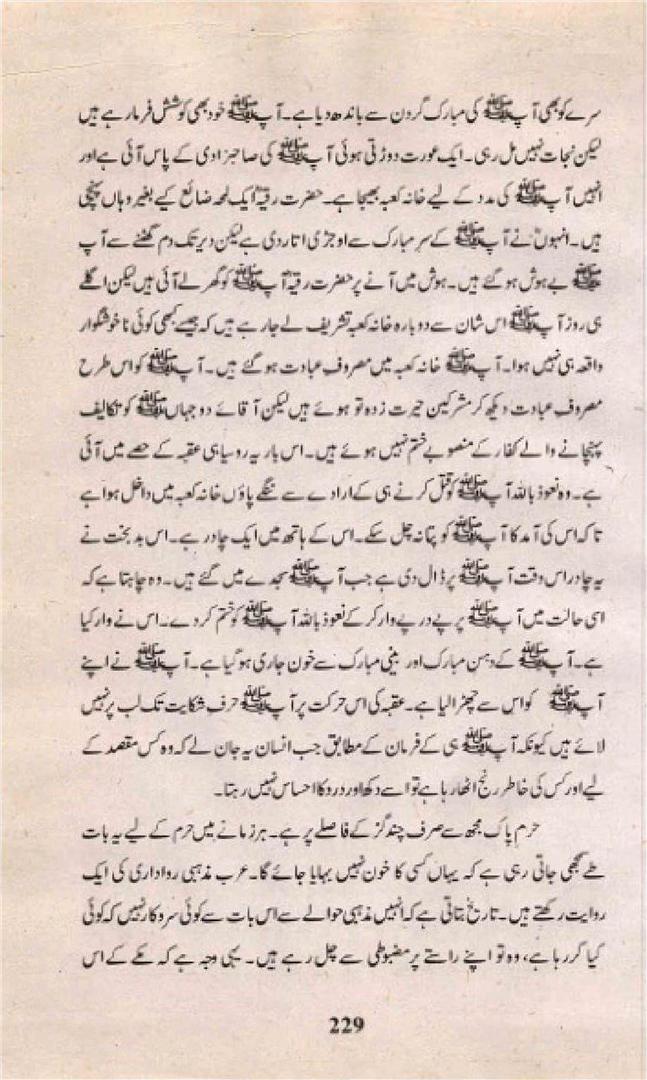 سرے کو بھی آپ ﷺ کی مبارک گردن سے باندھ دیا ہے۔ آپ ﷺ خود بھی کوشش فرما رہے ہیں
لیکن نجات نہیں مل رہی۔ ایک عورت دوڑتی ہوئی آپ ﷺ کی صاحبزادی کے پاس آئی ہے اور
انہیں آپ ﷺ کی مدد کے لیے خانہ کعبہ بھیجا ہے۔ حضرت رقیہؓ ایک لمحہ ضائع کیے بغیر وہاں پہنچی
ہیں۔ انہوںؓ نے آپ ﷺ کے سرِ مبارک سے اوجڑی اتار دی ہے لیکن دیر تک دم گھٹنے سے آپ
ﷺ بے ہوش ہو گئے ہیں۔ ہوش میں آنے پر حضرت رقیہؓ آپ ﷺ کو گھر لے آئی ہیں لیکن اگلے
ہی روز آپ ﷺ اس شان سے دوبارہ خانہ کعبہ تشریف لے جا رہے ہیں کہ جیسے کبھی کوئی ناخوشگوار
واقعہ ہی نہیں ہوا۔ آپ ﷺ خانہ کعبہ میں مصروفِ عبادت ہو گئے ہیں۔ آپ ﷺ کو اس طرح
مصروفِ عبادت دیکھ کر مشرکین حیرت زدہ تو ہوئے ہیں لیکن آقائے دو جہاں ﷺ کو تکالیف
پہنچانے والے کفار کے منصوبے ختم نہیں ہوئے ہیں۔ اس بار یہ روسیاہی عقبہ کے حصے میں آئی
ہے۔ وہ نعوذ باللہ آپ ﷺ کو قتل کرنے ہی کے ارادے سے ننگے پاؤں خانہ کعبہ میں داخل ہوا ہے
تاکہ اس کی آمد کا آپ ﷺ کو پتا نہ چل سکے۔ اس کے ہاتھ میں ایک چادر ہے۔ اس بد بخت نے
یہ چادر اس وقت آپ ﷺ پر ڈال دی ہے جب آپ ﷺ سجدے میں گئے ہیں۔ وہ چاہتا ہے کہ
اسی حالت میں آپ ﷺ پر پے در پے وار کر کے نعوذ باللہ آپ ﷺ کو ختم کر دے۔ اس نے وار کیا
ہے۔ آپ ﷺ کے دہن مبارک اور بینی مبارک سے خون جاری ہو گیا ہے۔ آپ ﷺ نے اپنے
آپ ﷺ کو اس سے چھڑا لیا ہے۔ عقبہ کی اس حرکت پر آپ ﷺ حرفِ شکایت تک لب پر نہیں
لائے ہیں کیونکہ آپ ﷺ ہی کے فرمان کے مطابق جب انسان یہ جان لے کہ وہ کس مقصد کے
لیے اور کس کی خاطر رنج اٹھا رہا ہے تو اسے دکھ اور درد کا احساس نہیں رہتا۔
حرم پاک مجھ سے صرف چند گز کے فاصلے پر ہے۔ ہر زمانے میں حرم کے لیے یہ بات
طے سمجھی جاتی رہی ہے کہ یہاں کسی کا خون نہیں بہایا جائے گا۔ عرب مذہبی رواداری کی ایک
روایت رکھتے ہیں۔ تاریخ بتاتی ہے کہ انہیں مذہبی حوالے سے اس بات سے کوئی سروکار نہیں کہ کوئی
کیا کر رہا ہے، وہ تو اپنے راستے پر مضبوطی سے چل رہے ہیں۔ یہی وجہ ہے کہ مکے کے اس
229